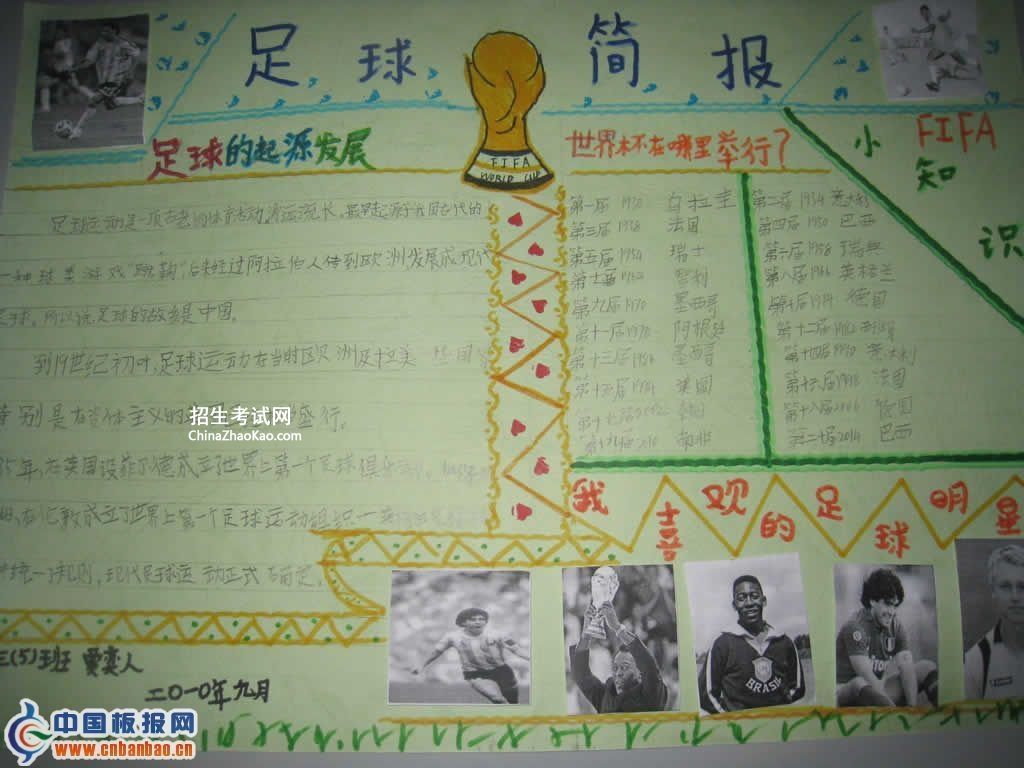 足球简报
足球的起源发展
足球运动是一项古老的体育活动,源远流长,最早起源于我国古代的
一种球类游戏"蹴鞠"后来经过阿拉伯人传到欧洲发展成现代
足球。所以说足球的故乡是中国。
到19世纪初叶,足球运动在当时欧洲及拉美一些国家
特别是在资本主义的 盛行。
年,在英国设菲尔德成立了世界上第一个足球俱乐部,
成立了世界上第一个足球运动组织
统一规则,现代足球运动正式确定。
三(5)班
二〇一〇年九月
FIFA
WORLD CUP
世界杯在哪里举行?
第一届 1930 乌拉圭 第二届 1934 意大利
第三届 1938 法国 第四届 1950 巴西
第五届 1954 瑞士 第六届 1958 瑞典
第七届 1962 智利 第八届 1966 英格兰
第九届 1970 墨西哥 第十届 1974 德国
第十一届 1978 阿根廷 第十二届 1982
第十三届 1986 墨西哥 第十四届 1990 意大利
第十五届 1994 美国 第十六届 1998 法国
第十七届 2002 韩国 第十八届 2006 德国
第十九届 2010 南非 第二十届 2014 巴西
FIFA
小知识
我喜欢的足球明星
BRASIL
招生考试网
ChinaZhaoKao.com
中国板报网
www.cnbanbao.cn